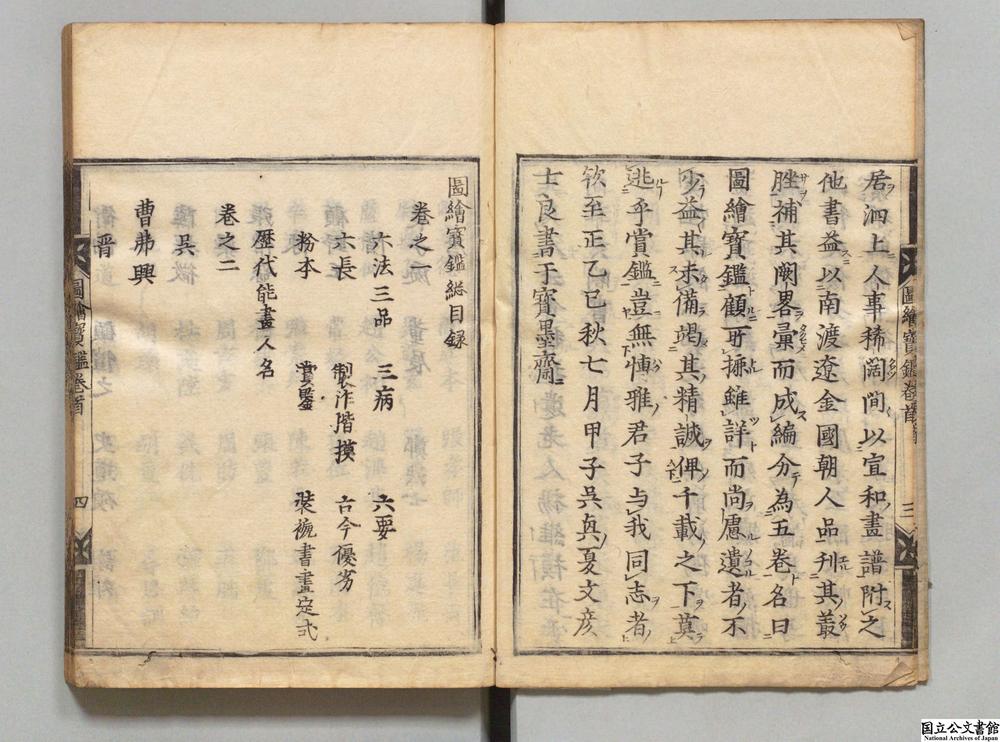 居泗上人事稀闊間以宣和畫譜附之
他書益以南渡遼金國朝人品刊其叢
脞補其闕畧彙而成編分為五卷名曰
圖繪寶鑑顧所摭雖詳而尚慮遺者不
少益其未備竭其精誠俾千載之下莫
逃乎賞鑑豈無博雅君子与我同志者
欤至正乙巳秋七月甲子吳興夏文彦
士良書于寳墨齋
圖繪寶鑑卷首
三
圖繪寶鑑総目録
卷之一
六法三品 三病 六要
六長 製作階摸 古今優劣
粉本 賞鑒 裝褫書畫定式
歷代能畫人名
卷之二
吳
曹弗興
晋
圖繪寶鑑卷首
四
国立公文書館
National Archives of Japan